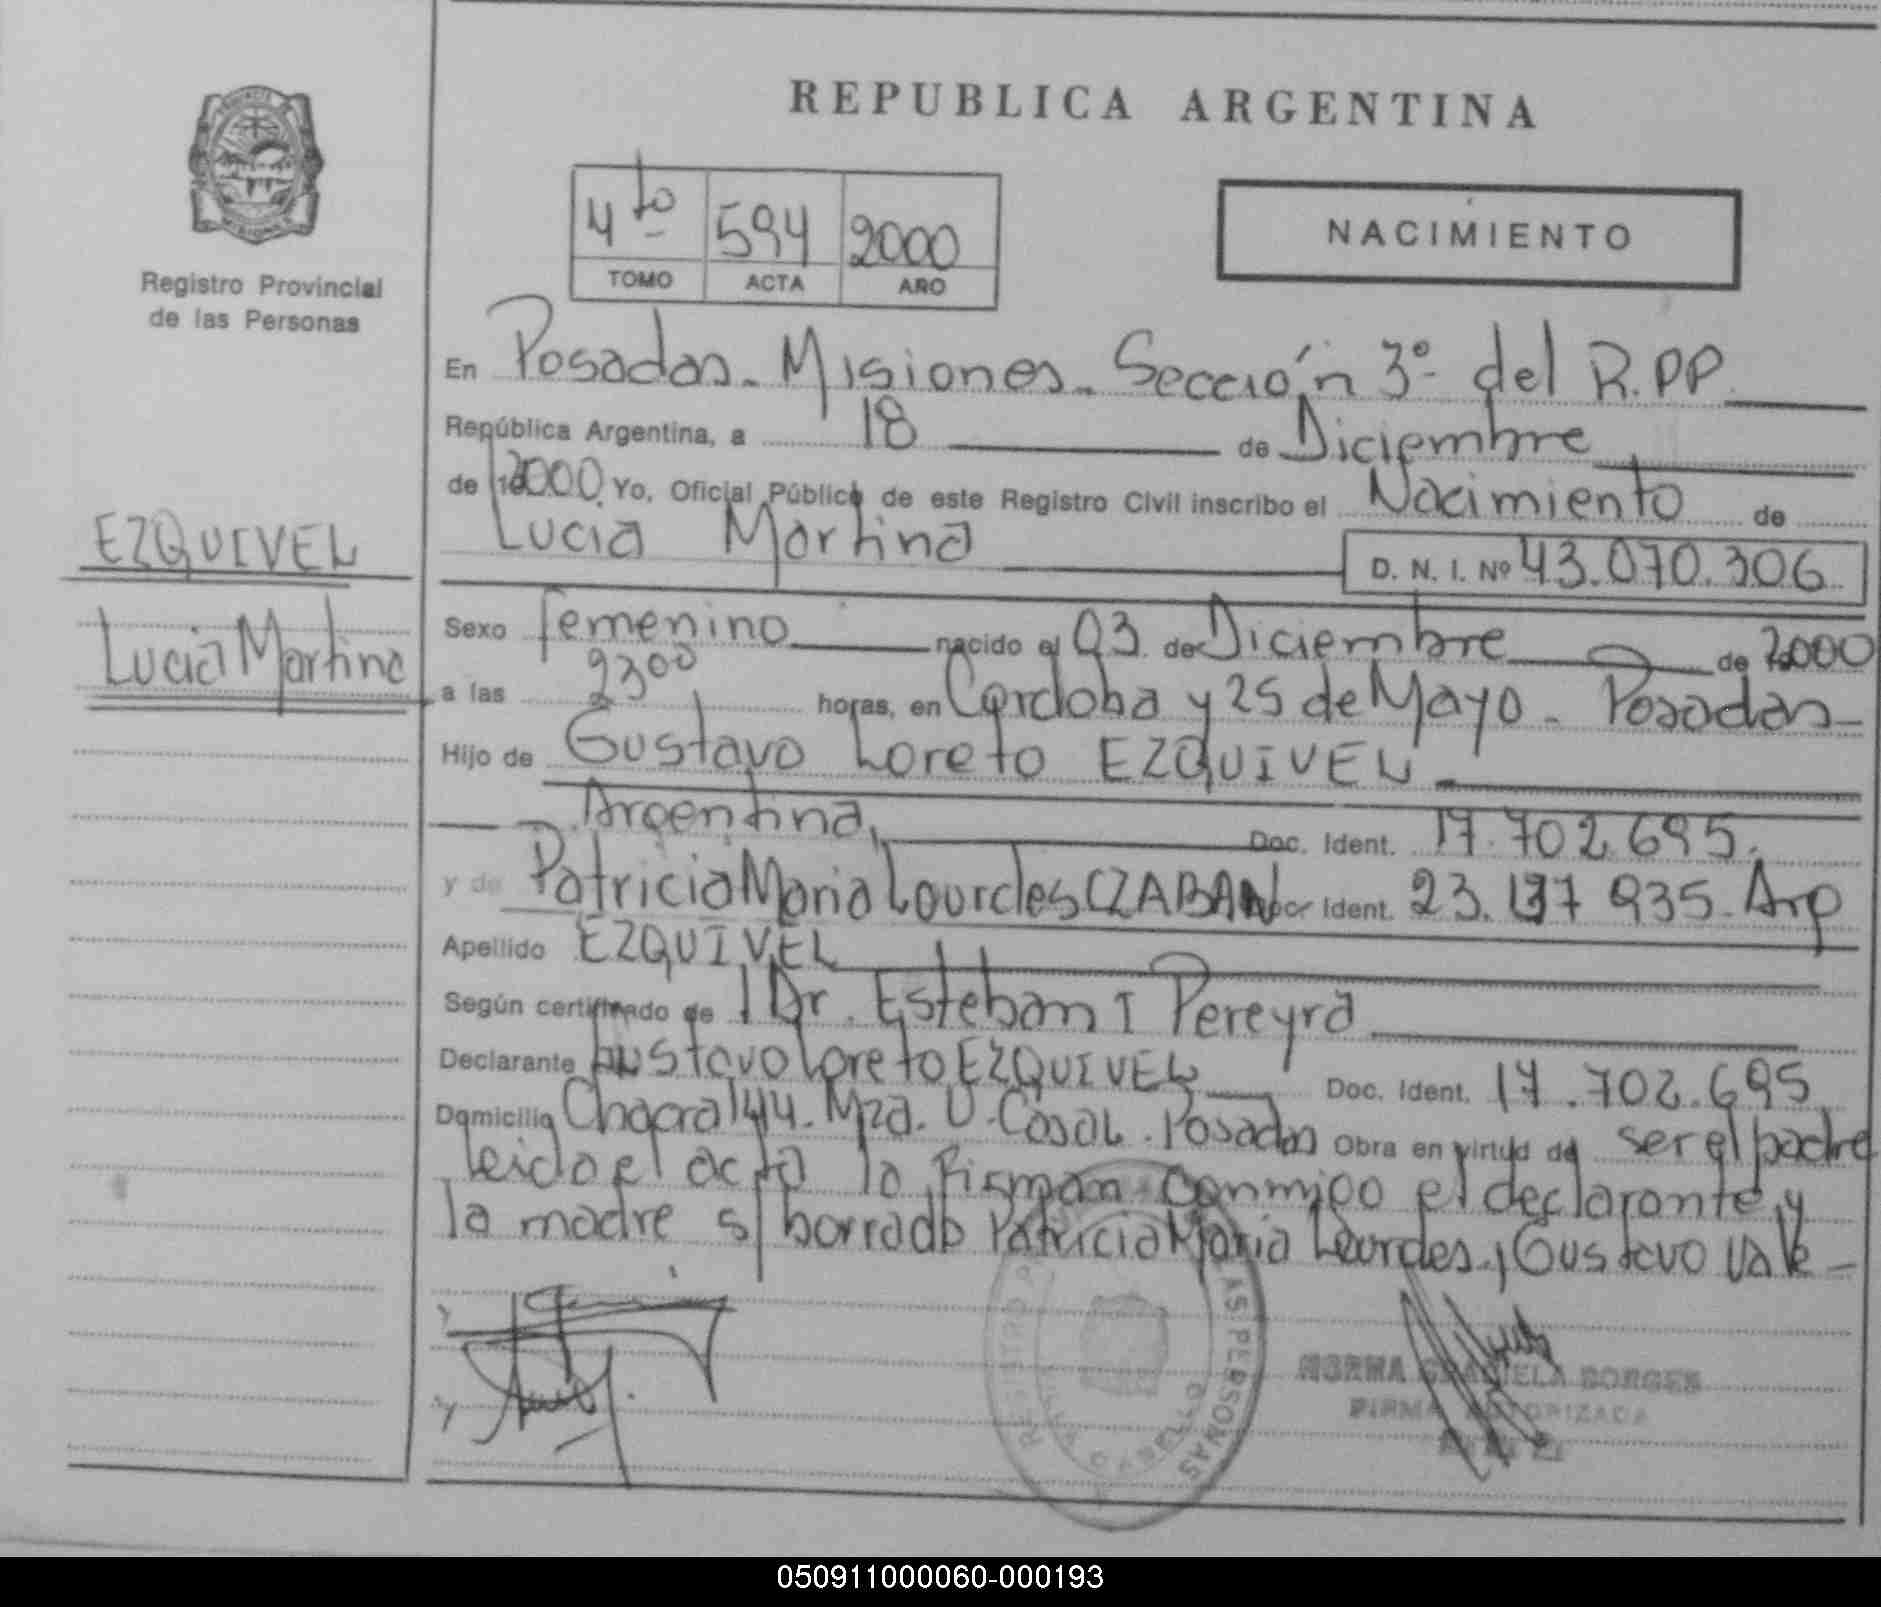 REPUBLICA ARGENTINA
4to 594 2000
TOMO ACTA AÑO
NACIMIENTO
Registro Provincial
de las Personas
EZQUIVEL
Lucia Martina
En Posadas - Misiones - Sección 3º del R.P.P.
República Argentina, a 18 de Diciembre
de 2000 Yo, Oficial Público de este Registro Civil inscribo el Nacimiento de
Lucia Martina D. N. I. Nº 43.070.306
Sexo Femenino nacido el 03 de Diciembre de 2000
a las 2300 horas, en Cordoba y 25 de Mayo - Posadas -
Hijo de Gustavo Loreto EZQUIVEL
Argentina, Doc. Ident. 17.702.695.
y de Patricia Maria Lourdes CZABAN Doc Ident. 23.197 935. Arg
Apellido EZQUIVEL
Según certificado de Dr. Esteban I Pereyra
Declarante Gustavo Loreto EZQUIVEL Doc. Ident. 17.702.695
Domicilio Chacra 144. Mza. U. Casa L. Posadas Obra en virtud de ser el padre
leido el acta la firman conmigo el declarante y
la madre s/ borrado Patricia Maria Lourdes, Gustavo Vale -
REGISTRO AS PERSONAS
NORMA GRACIELA BORGES
FIRMA AUTORIZADA
050911000060-000193